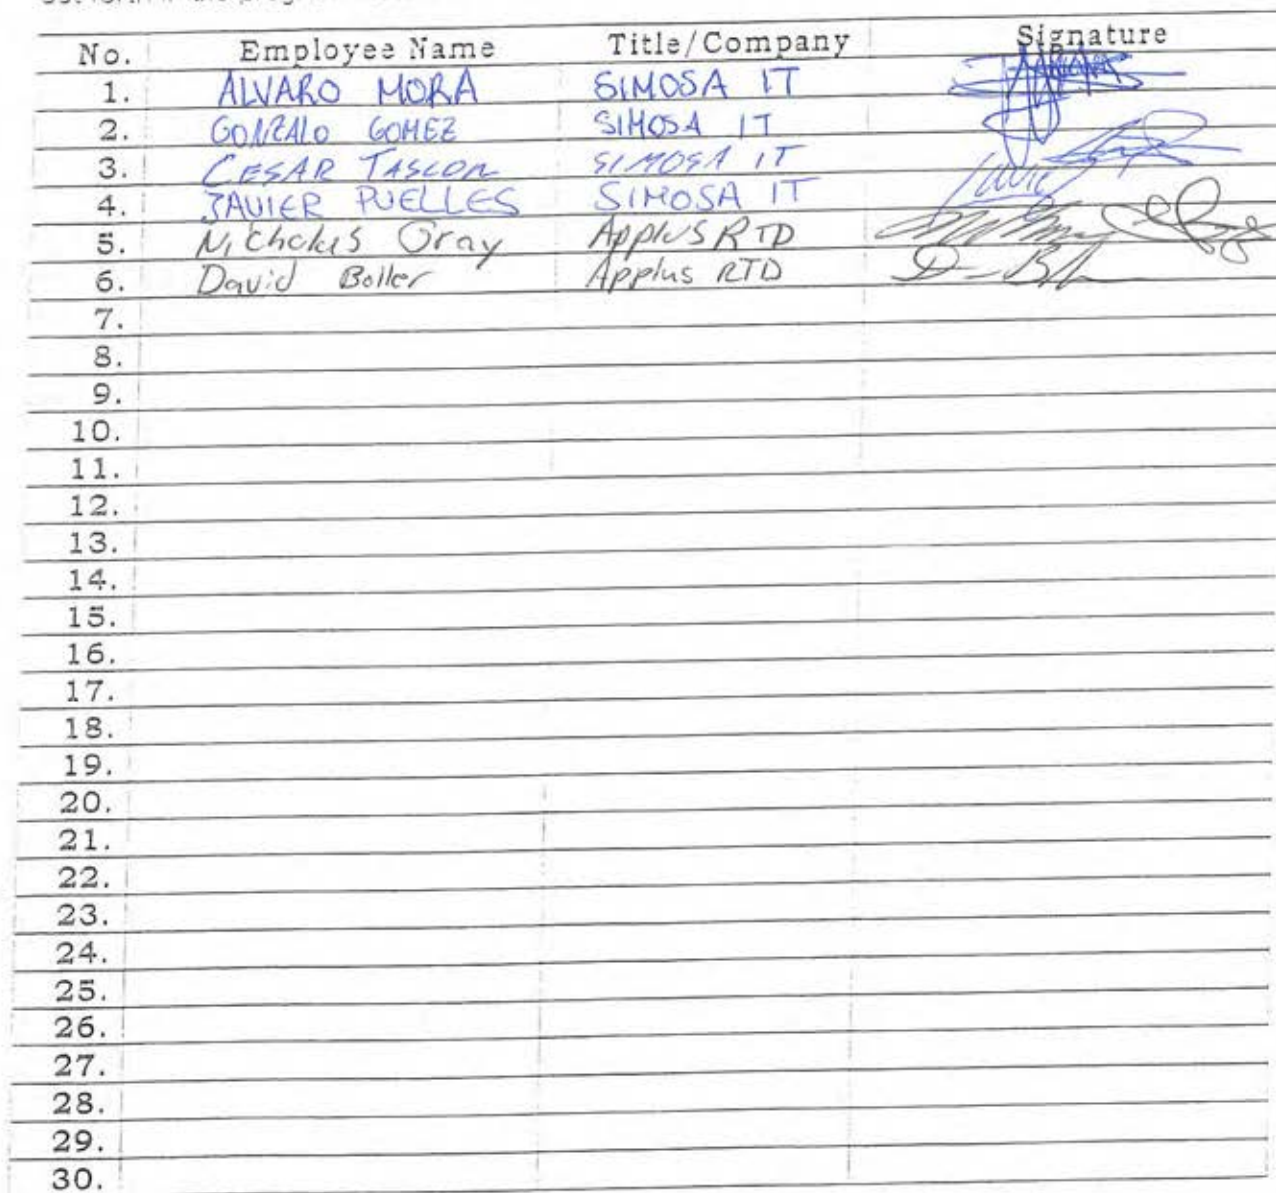 No. Employee Name Title/Company Signature
1. ALVARO MORA SIMOSA IT
2. GONZALO GOMEZ SIMOSA IT
3. CESAR TASCON SIMOSA IT
4. JAVIER PUELLES SIMOSA IT
5. Nicholas Gray Applus RTD
6. David Boller Applus RTD
7.
8.
9.
10.
11.
12.
13.
14.
15.
16.
17.
18.
19.
20.
21.
22.
23.
24.
25.
26.
27.
28.
29.
30.